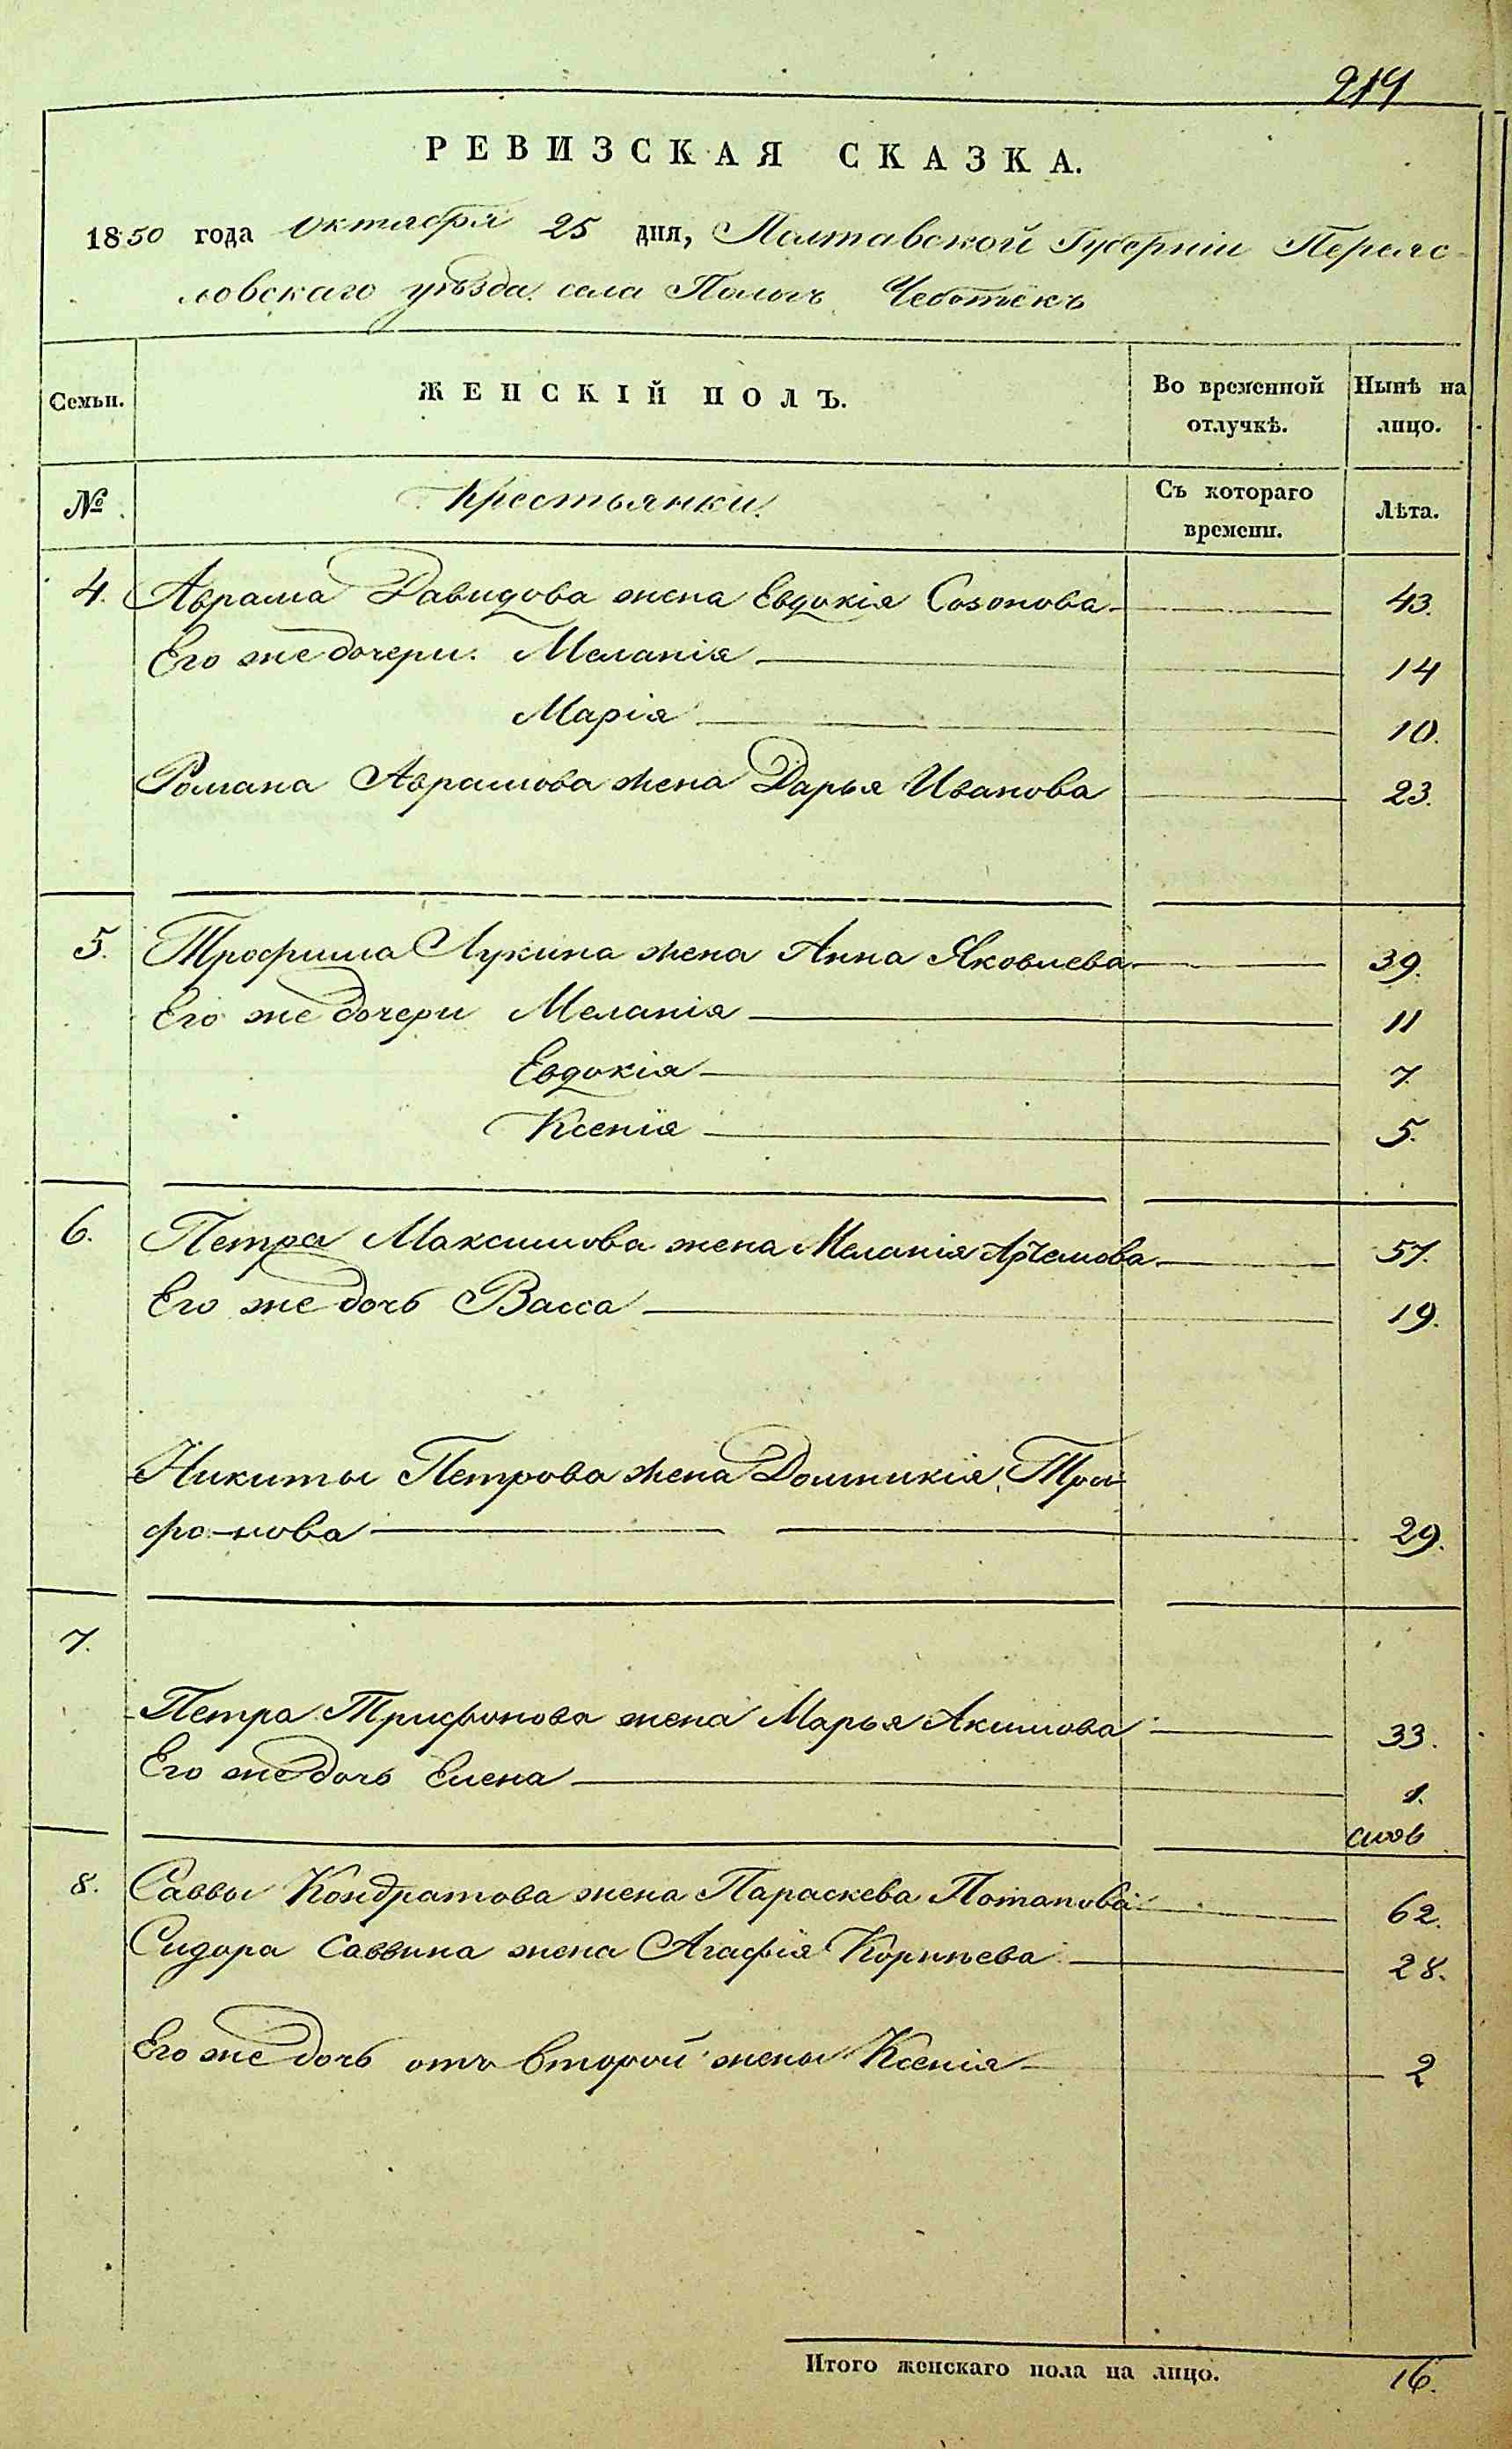 219
РЕВИЗСКАЯ СКАЗКА.
1850 года октября 25 дня, Полтавской Губерніи Переяс-
ловскаго уѣзда села Чеботокъ
Семьи. ЖЕНСКІЙ ПОЛЪ. Во временной отлучкѣ. Нынѣ на лицо.
№ Крестьянки. Съ котораго времени. Лѣта.
4. Аврама Давидова жена Евдокія Созонова 43.
Его же дочери. Меланія 14
Марія 10.
Романа Аврамова жена Дарья Иванова 23.
5. Трофима Лукина жена Анна Яковлева 39.
Его же дочери Меланія 11
Евдокія 7.
Ксенія 5.
6. Петра Максимова жена Меланія Артемова 57.
Его же дочь Васса 19.
Никиты Петрова жена Домникія Три-
фо-нова 29.
7.
Петра Трифонова жена Марья Акимова 33.
Его же дочь Елена 1.
8. Саввы Кондратова жена Параскева Потапова 62.
Сидора Саввина жена Агафія Корнѣева 28.
Его же дочь отъ второй жены Ксенія 2
Итого женскаго пола на лицо. 16.